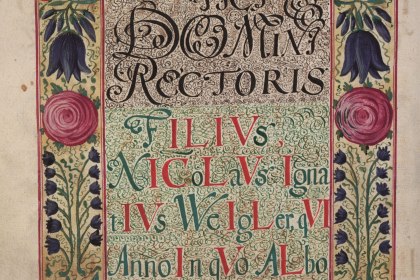 DOMINI
RECTORIS
FILIVs,
NICOLAVs IGna
tIVS WeIGLer, qVI
Anno In qVo ALbo